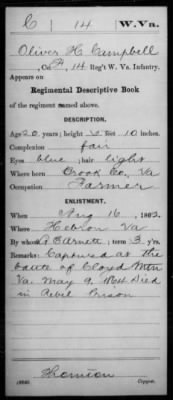 C 14 W.Va.
Oliver H. Campbell
Co. F, 14 Reg't W. Va. Infantry.
Appears on
Regimental Descriptive Book
of the regiment named above.
DESCRIPTION.
Age 20 years; height 5 feet 10 inches.
Complexion fair
Eyes blue; hair light
Where born Brook Co, Va
Occupation Farmer
ENLISTMENT.
When Aug 16, 1862.
Where Hebron Va
By whom Barnett; term 3 y'rs.
Remarks: Captured at the
battle of Cloyd Mtn
Va. May 9, 1864 Died
in Rebel Prison
Copyist.